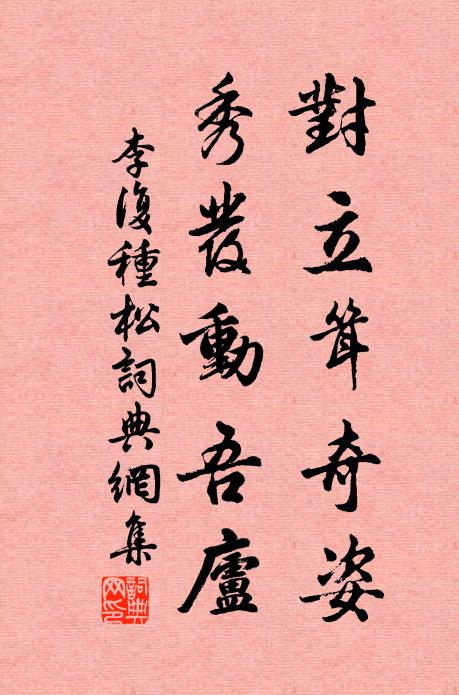 對立耸奇姿
秀發動吾廬
李復種松詞典網集
詞典網印